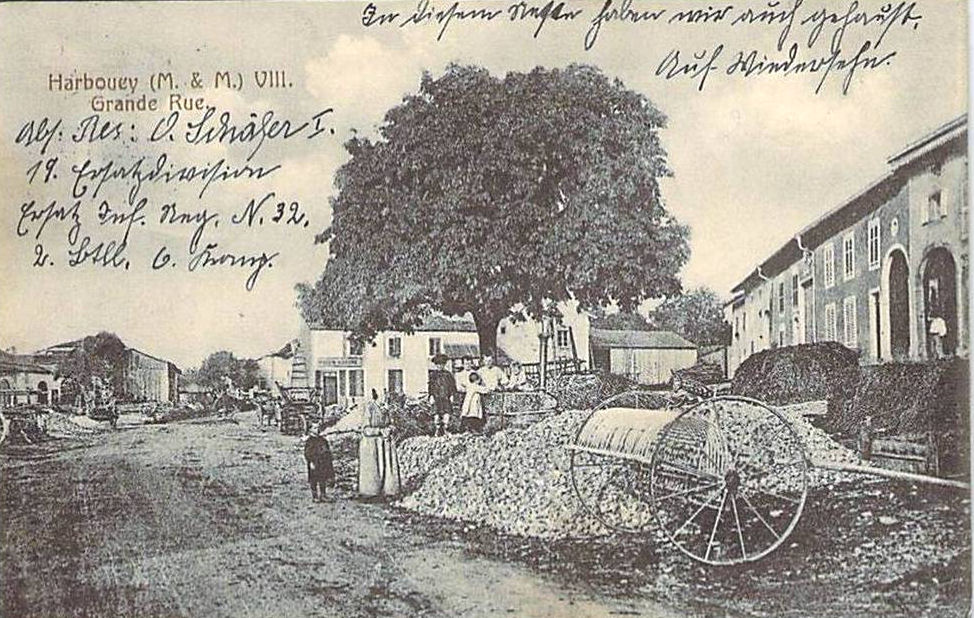 In diesem Neste haben wir auch gehaust.
Auf Wiedersehn.
Harbouey (M. & M.) VIII.
Grande Rue.
Abs: Res: O. Schäfer I.
19. Ersatzdivision
Ersatz Inf. Reg. N. 32.
2. Btll. 6. Komp.